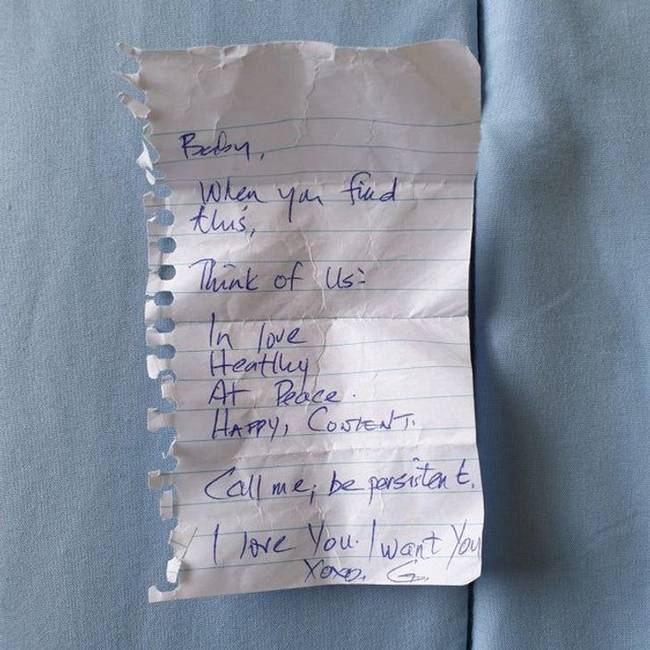 Baby,
When you find
this,
Think of Us:
In love
Heatlhy
At Peace.
HAPPY, CONTENT.
Call me; be persistent.
I love You. I want You
Xoxo, G.